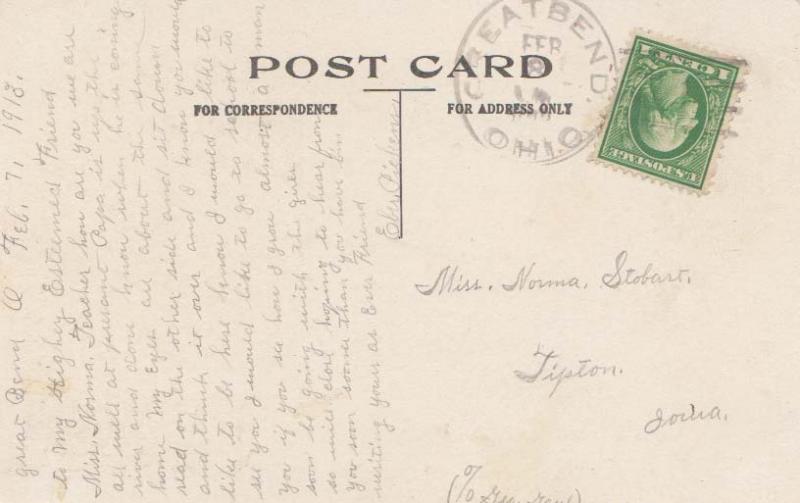 POST CARD
FOR CORRESPONDENCE
FOR ADDRESS ONLY
GREAT BEND
FEB
8
OHIO
1 CENT 1
U.S. POSTAGE
Great Bend O Feb. 7, 1913.
to My Highley Estlemed Friend
Miss. Norma. Teacher how are you we are
all well at present Papa is up the
river and dont know when he is coming
home My Eyes are about the same
read on the other side and sit down
and think it over and I know you would
like to be here know I would like to
see you I would like to go to school to
you if you see how I grow almost a man
soon be going with the girls
so will close hoping to hear from
you soon sooner than you have bin
writing yours as Ever Friend
Eber Pickens
Miss. Norma. Stobart.
Tipton.
Iowa.